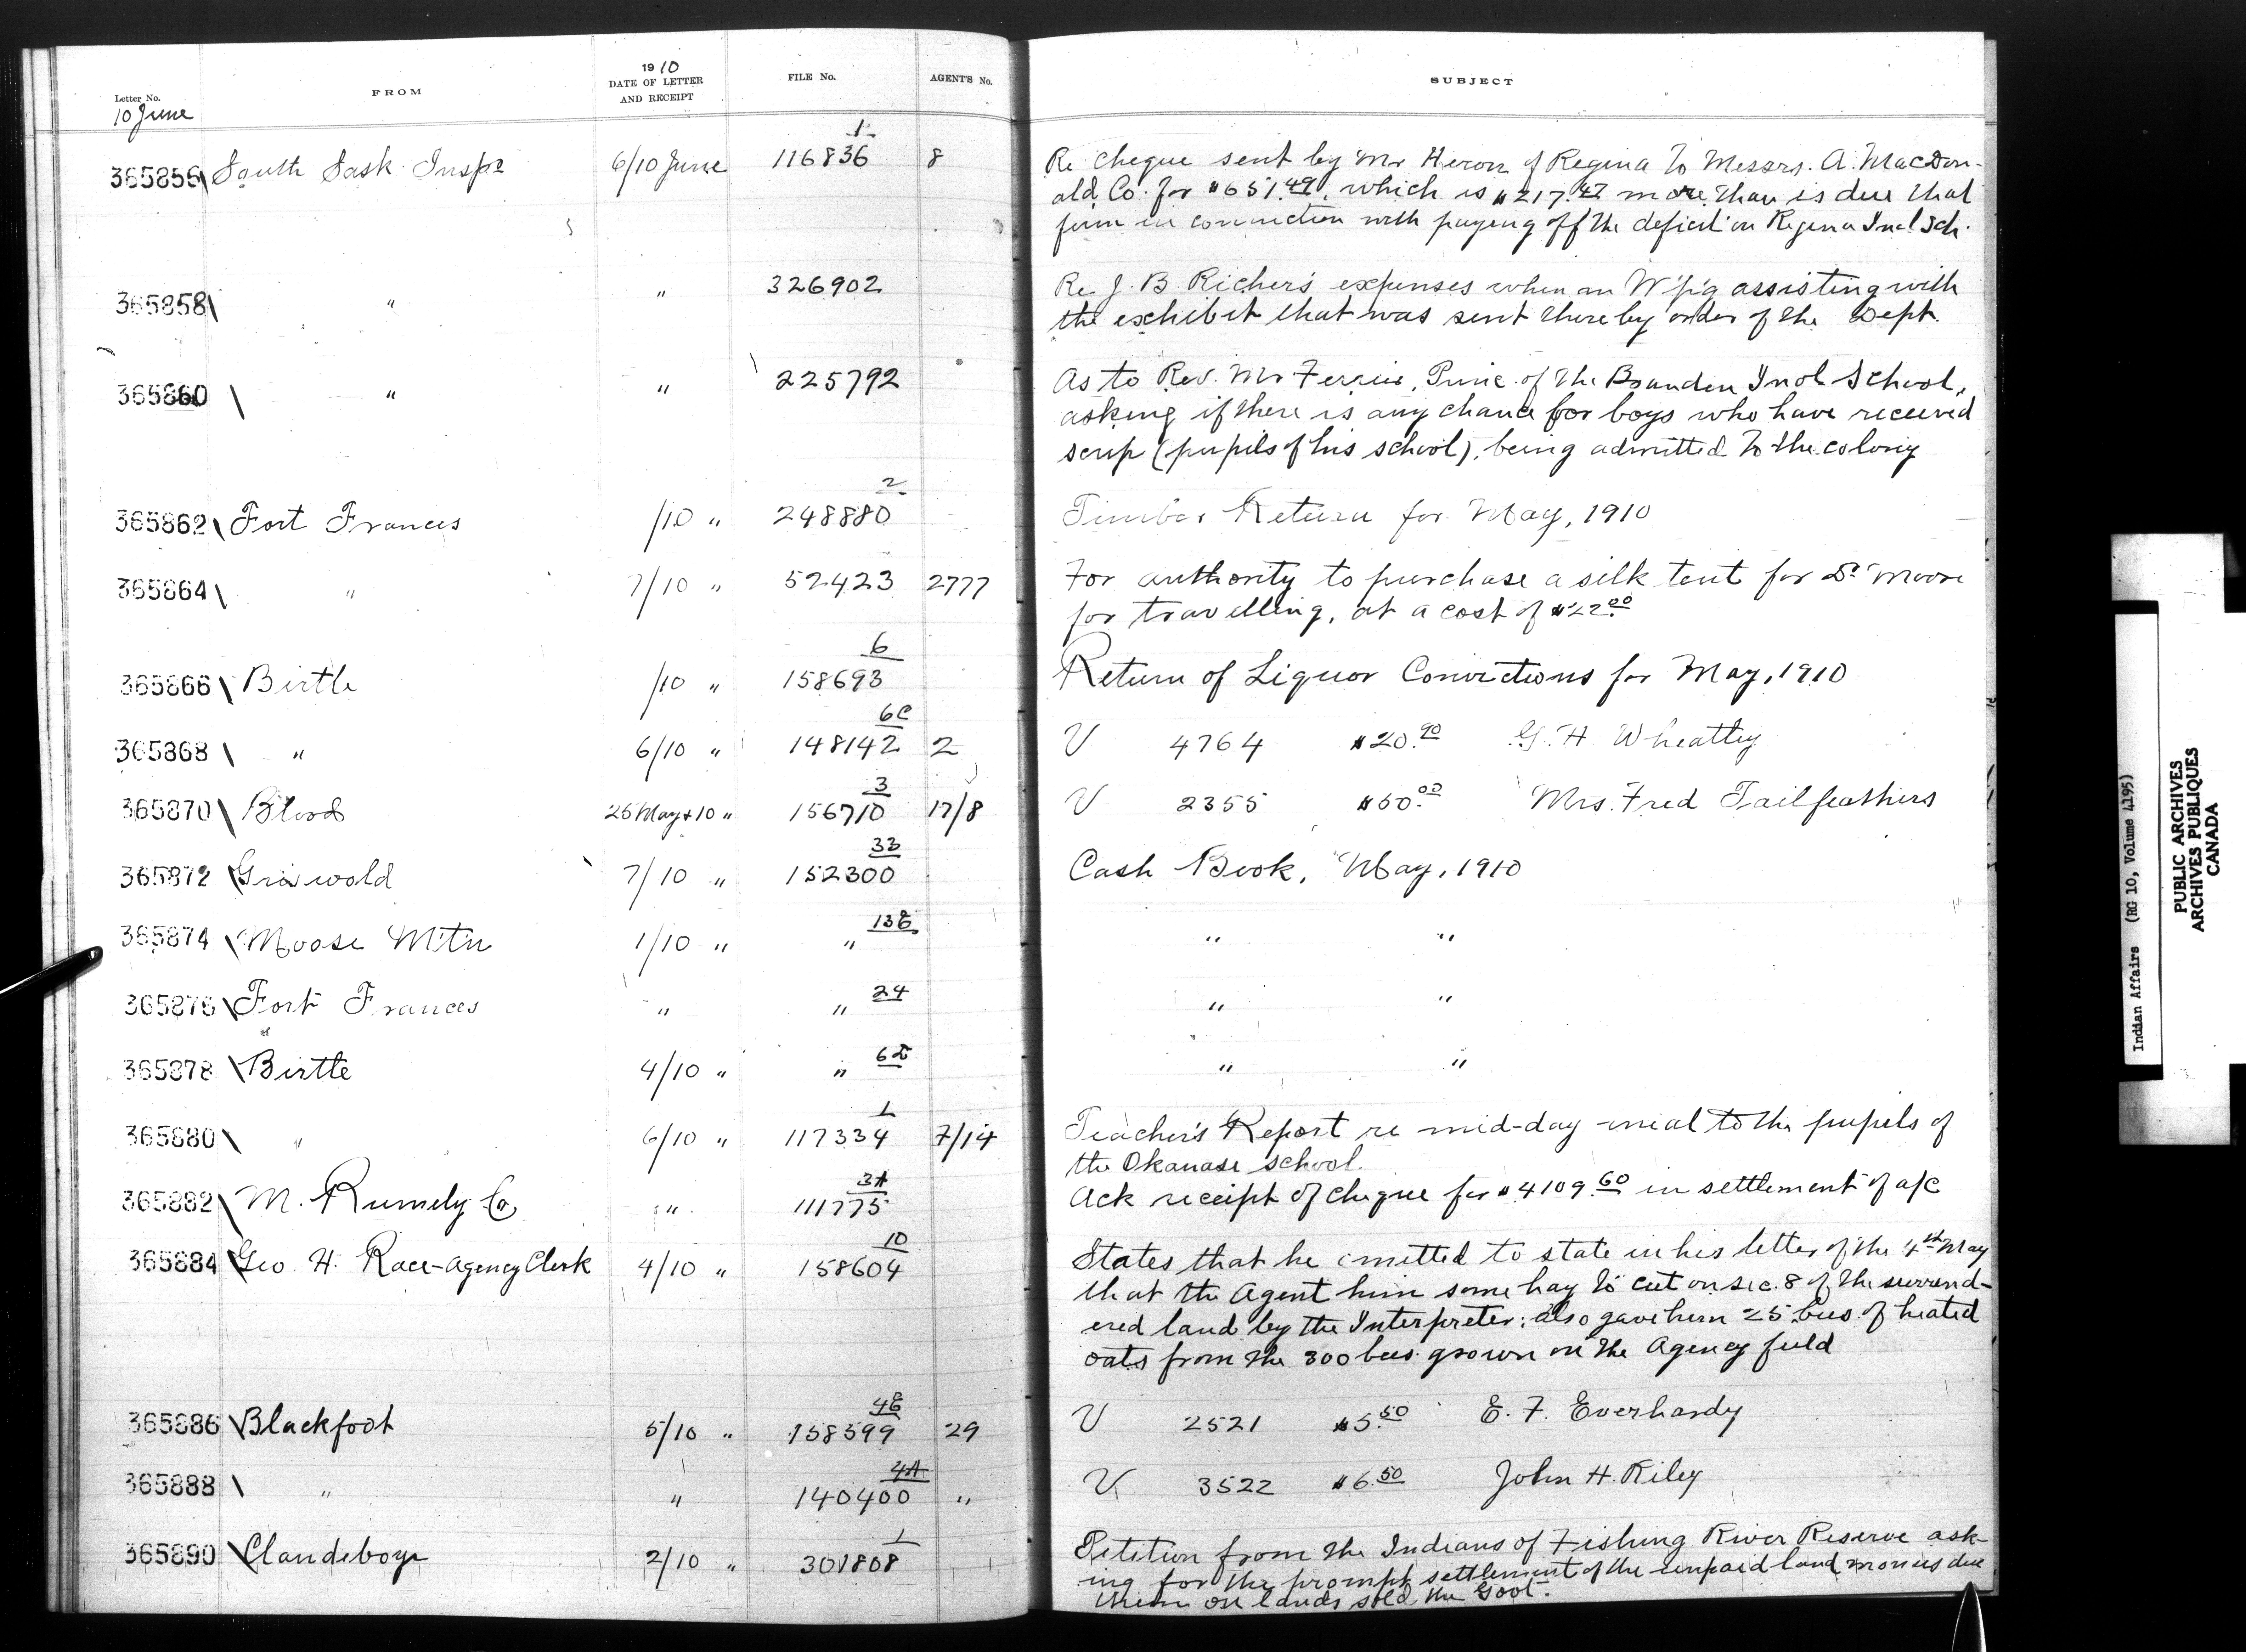 Letter No.
FROM
1910
DATE OF LETTER
AND RECEIPT
FILE No.
AGENT'S No.
SUBJECT
10 June
365856 South Sask. Inspr 6/10 June 116836 1 8
Re cheque sent by Mr Heron of Regina to Messrs. A. MacDon-
ald Co. for $651.49, which is $217.47 more than is due that
firm in connection with paying off the deficit on Regina Indl Sch.
365858 " " 326902
Re J. B. Richer's expenses when in W'p'g assisting with
the exhibit that was sent there by order of the Dept.
365860 " " 225792
As to Rev. Mr Ferrier, Princ. of the Brandon Indl School,
asking if there is any chance for boys who have received
scrip (pupils of his school), being admitted to the colony
365862 Fort Frances /10 " 248880 2
Timber Return for May, 1910
365864 " 7/10 " 52423 2777
For authority to purchase a silk tent for Dr Moore
for travelling, at a cost of $22.00
365866 Birtle /10 " 158693 6
Return of Liquor Convictions for May, 1910
365868 " 6/10 " 148142 6C 2
V 4764 $20.90 G. H Wheatley
365870 Blood 25 May & 10 " 156710 3 17/8
V 2355 $50.00 Mrs. Fred Tailfeathers
365872 Griswold 7/10 " 152300 33
Cash Book, May, 1910
365874 Moose Mtn 1/10 " " 13E
" "
365876 Fort Frances " " 24
" "
365878 Birtle 4/10 " " 6D
" "
365880 " 6/10 " 117334 1 7/14
Teacher's Report re mid-day meal to the pupils of
the Okanase school.
365882 M. Rumely Co " 111775 3A
Ack receipt of cheque for $4109.60 in settlement of a/c
365884 Geo. H. Race - Agency Clerk 4/10 " 158604 10
States that he omitted to state in his letter of the 4th May
that the Agent him some hay to cut on sec. 8 of the surrend-
ered land by the Interpreter; also gave him 25 bus. of heated
oats from the 300 bus. grown on the Agency field
365886 Blackfoot 5/10 " 158599 4E 29
V 2521 $5.50 E. F. Everhardy
365888 " " 140400 4A "
V 3522 $6.50 John H. Riley
365890 Clandeboye 2/10 " 301808 1
Petition from the Indians of Fishing River Reserve ask-
ing for the prompt settlement of the unpaid land monies due
them on lands sold the Govt.
Indian Affairs (RG 10, Volume 4195)
PUBLIC ARCHIVES
ARCHIVES PUBLIQUES
CANADA